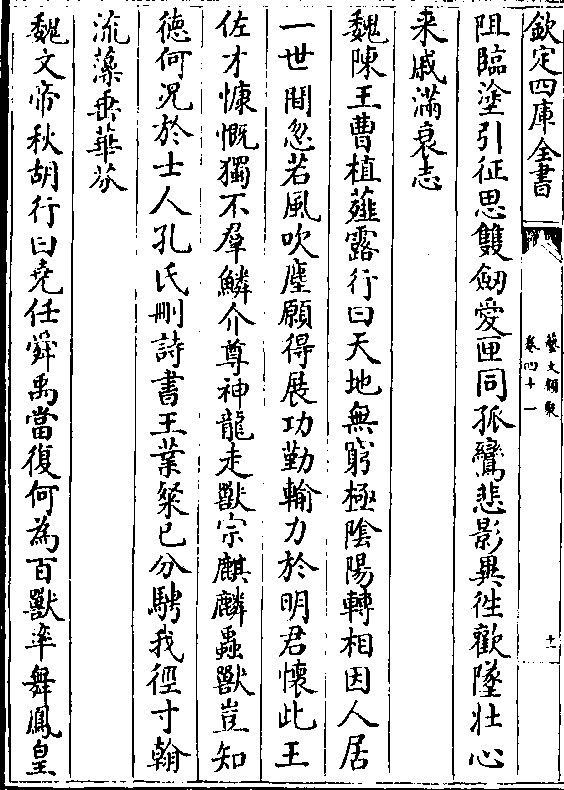 欽定四庫全書
藝文類聚
卷四十一
十一
阻臨塗引征思雙劒愛匣同孤鸞悲影異徃歡墜壯心
来戚滿衰志
魏陳王曹植薤露行曰天地無窮極陰陽轉相因人居
一世間忽若風吹塵願得展功勤輸力於明君懷此王
佐才慷慨獨不羣鱗介尊神龍走獸宗麒麟蟲獸豈知
徳何況於士人孔氏刪詩書王業粲已分騁我徑寸翰
流藻垂華芬
魏文帝秋胡行曰堯任舜禹當復何為百獸率舞鳳皇